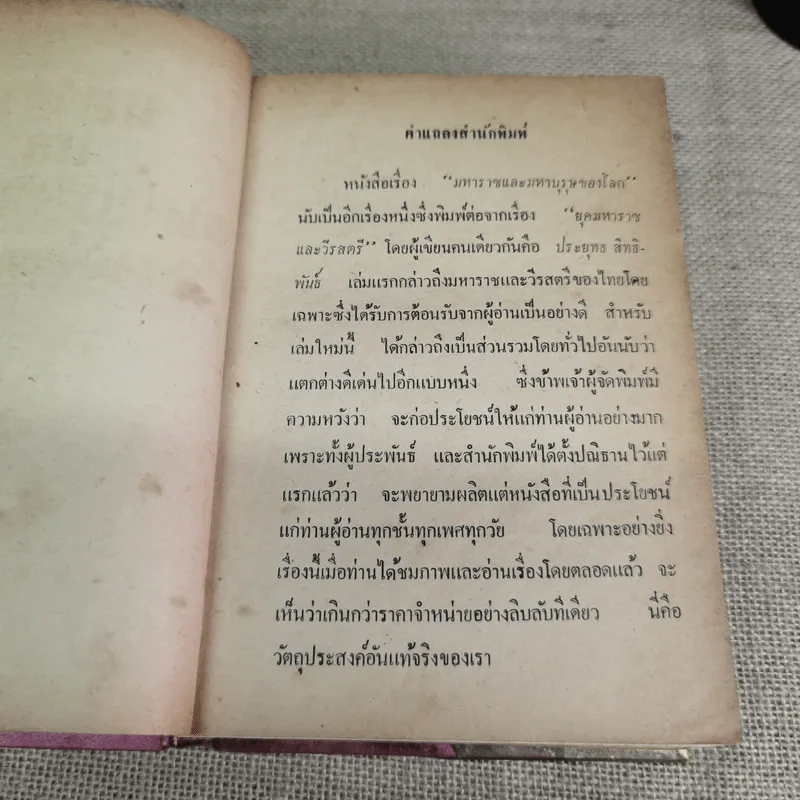 คำแถลงสำนักพิมพ์
หนังสือเรื่อง "มหาราชและมหาบุรุษของโลก"
นับเป็นอีกเรื่องหนึ่งซึ่งพิมพ์ต่อจากเรื่อง "ยุคมหาราช
และวีรสตรี" โดยผู้เขียนคนเดียวกันคือ ประยุทธ สิทธิ-
พันธ์ เล่มแรกกล่าวถึงมหาราชและวีรสตรีของไทยโดย
เฉพาะซึ่งได้รับการต้อนรับจากผู้อ่านเป็นอย่างดี สำหรับ
เล่มใหม่นี้ ได้กล่าวถึงเป็นส่วนรวมโดยทั่วไปอันนับว่า
แตกต่างดีเด่นไปอีกแบบหนึ่ง ซึ่งข้าพเจ้าผู้จัดพิมพ์มี
ความหวังว่า จะก่อประโยชน์ให้แก่ท่านผู้อ่านอย่างมาก
เพราะทั้งผู้ประพันธ์ และสำนักพิมพ์ได้ตั้งปณิธานไว้แต่
แรกแล้วว่า จะพยายามผลิตแต่หนังสือที่เป็นประโยชน์
แก่ท่านผู้อ่านทุกชั้นทุกเพศทุกวัย โดยเฉพาะอย่างยิ่ง
เรื่องนี้เมื่อท่านได้ชมภาพและอ่านเรื่องโดยตลอดแล้ว จะ
เห็นว่าเกินกว่าราคาจำหน่ายอย่างลิบลับทีเดียว นี่คือ
วัตถุประสงค์อันแท้จริงของเรา